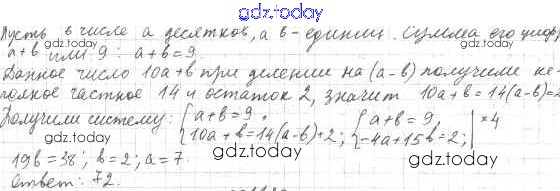 gdz.today
Пусть в числе a десятков, а b-единиц. Сумма его цифр
gdz.today
a+b или 9: a+b=9.
gdz.today
Данное число 10a+b при делении на (a-b) получили не-
gdz.today
полное частное 14 и остаток 2, значит 10a+b=14(a-b)+2
gdz.today
Получили систему: {a+b=9, {a+b=9, |×4
{10a+b=14(a-b)+2; {-4a+15b=2;
gdz.today
19b=38; b=2; a=7.
gdz.today
Ответ: 72.
gdz.today